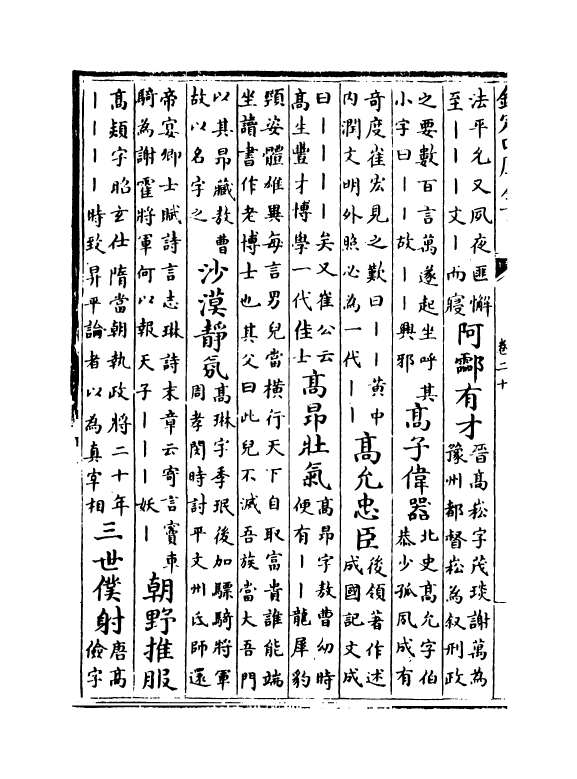 欽定四庫全書
卷二十
法平允又夙夜匪懈
至｜｜｜文｜而寢
阿酃有才
晉髙崧字茂琰謝萬為
豫州都督崧為叙刑政
之要數百言萬遂起坐呼其
小字曰｜｜故｜｜興邪
髙子偉器
北史髙允字伯
恭少孤夙成有
竒度崔宏見之歎曰｜｜黄中
内潤文明外照必為一代｜｜
髙允忠臣
後領著作述
成國記文成
曰｜｜｜｜矣又崔公云
髙生豐才博學一代佳士
髙昂壯氣
髙昂字敖曹幼時
便有｜｜龍犀豹
頸姿體雄異每言男兒當横行天下自取富貴誰能端
坐讀書作老博士也其父曰此兒不滅吾族當大吾門
以其昂藏敖曹
故以名字之
沙漠靜氛
髙琳字季珉後加驃騎將軍
周孝閔時討平文州氐師還
帝宴卿士賦詩言志琳詩末章云寄言竇車
騎為謝霍將軍何以報天子｜｜｜妖｜
朝野推服
髙熲字昭玄仕隋當朝執政將二十年
｜｜｜｜時致昇平論者以為真宰相
三世僕射
唐髙
儉字